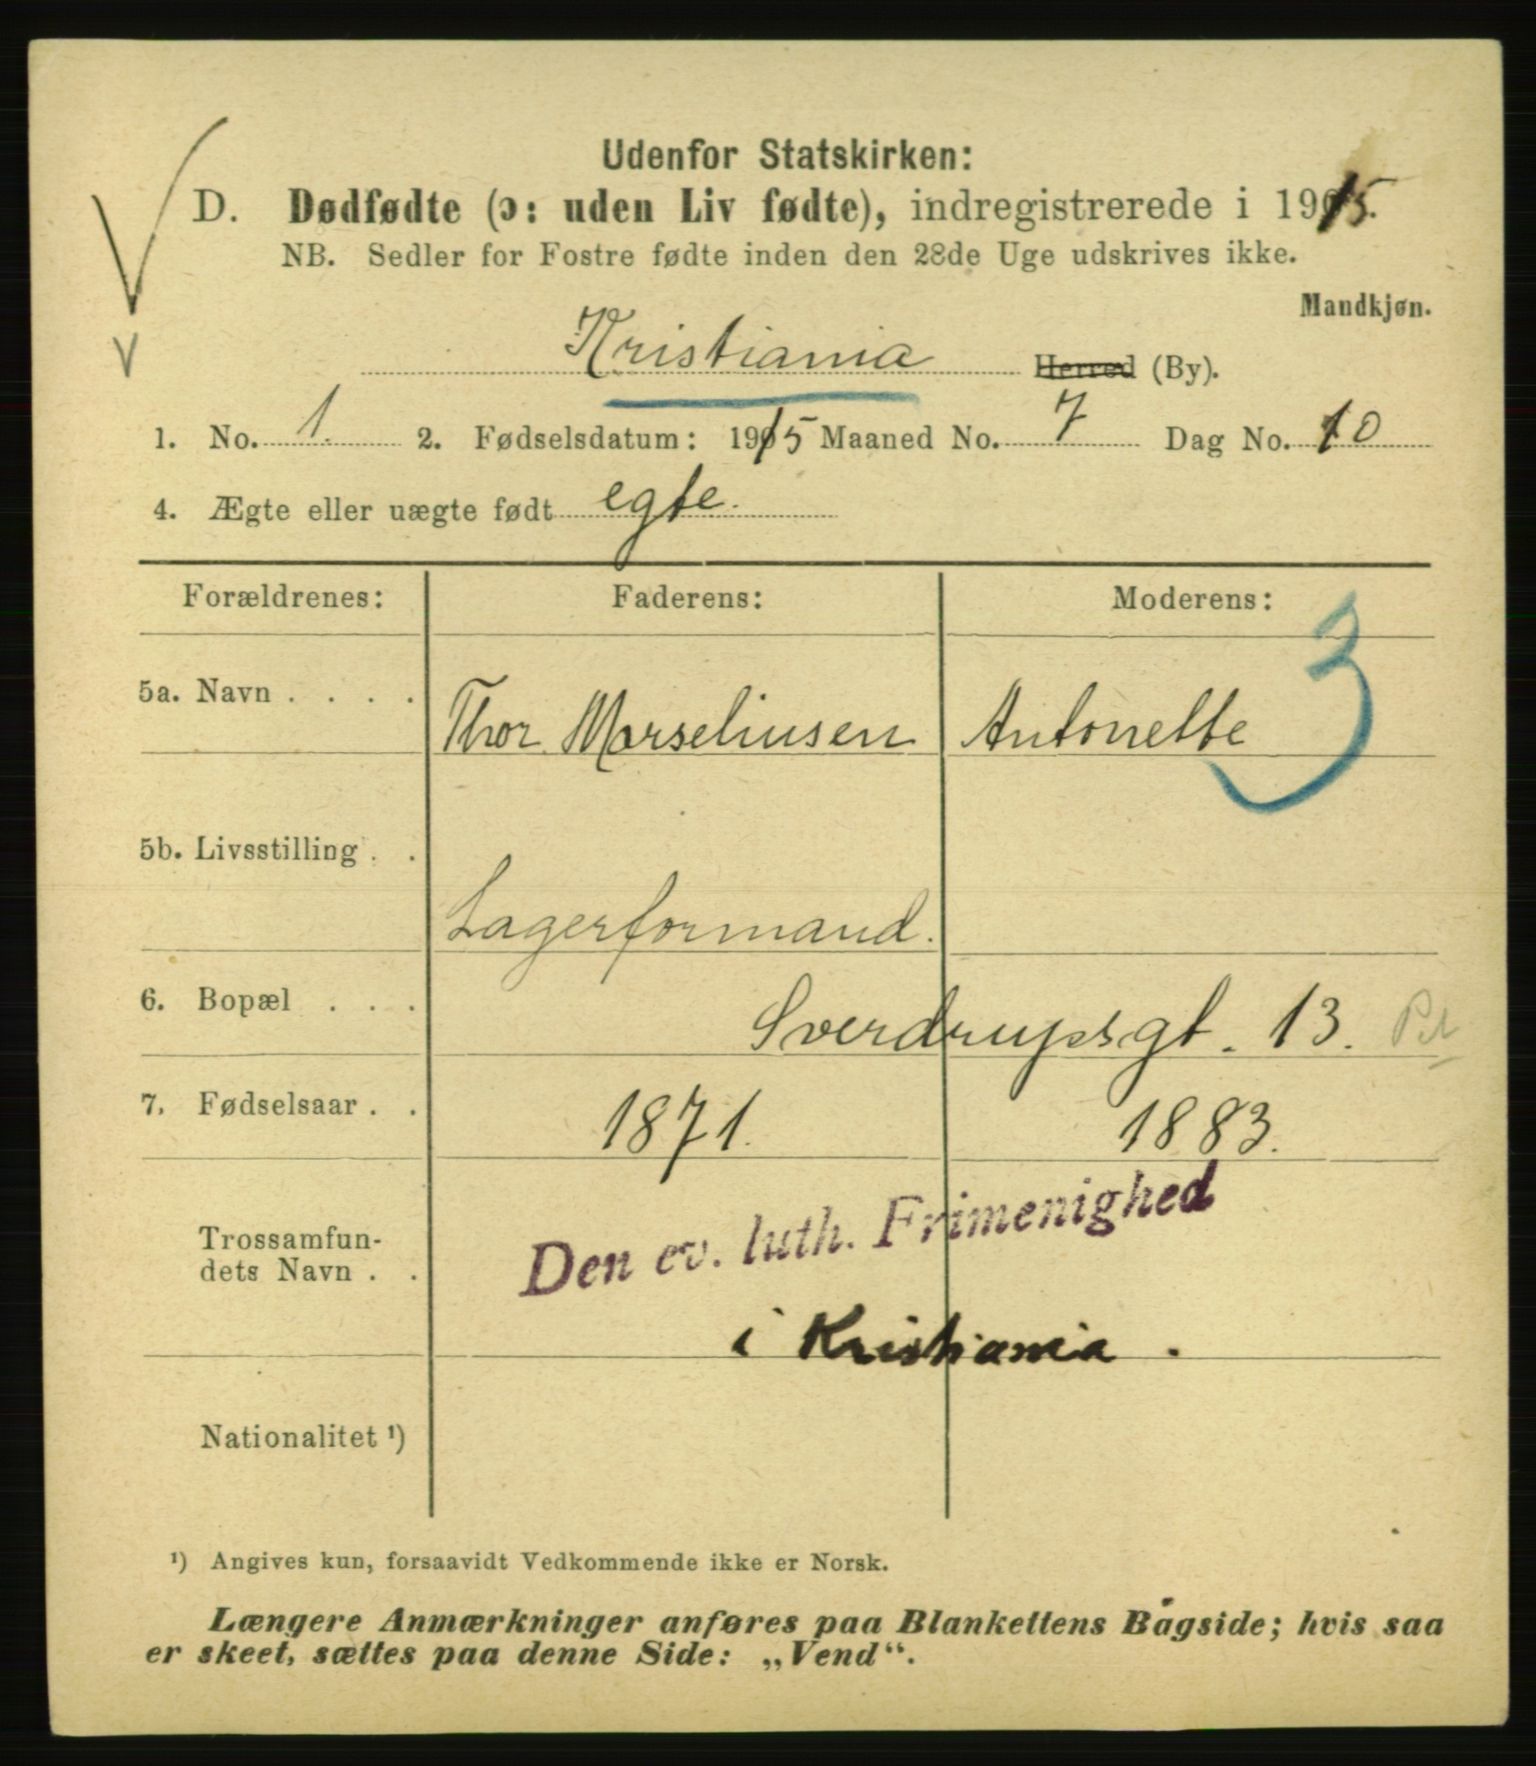 Udenfor Statskirken:
D. Dødfødte (ɔ: uden Liv fødte), indregistrerede i 1915.
NB. Sedler for Fostre fødte inden den 28de Uge udskrives ikke.
Mandkjøn.
Kristiania Herred (By).
1. No. 1. 2. Fødselsdatum: 1915 Maaned No. 7 Dag No. 10
4. Ægte eller uægte født egte.
Forældrenes: Faderens: Moderens:
3
5a. Navn . . . . Thor Marseliusen Antonette
5b. Livsstilling . . Lagerformand.
6. Bopæl . . . Sverdrupsgt. 13.
7. Fødselsaar . . 1871. 1883.
Trossamfun-
dets Navn . . Den ev. luth. Frimenighed
i Kristiania.
Nationalitet ¹)
¹) Angives kun, forsaavidt Vedkommende ikke er Norsk.
Længere Anmærkninger anføres paa Blankettens Bagside; hvis saa
er skeet, sættes paa denne Side: „Vend“.